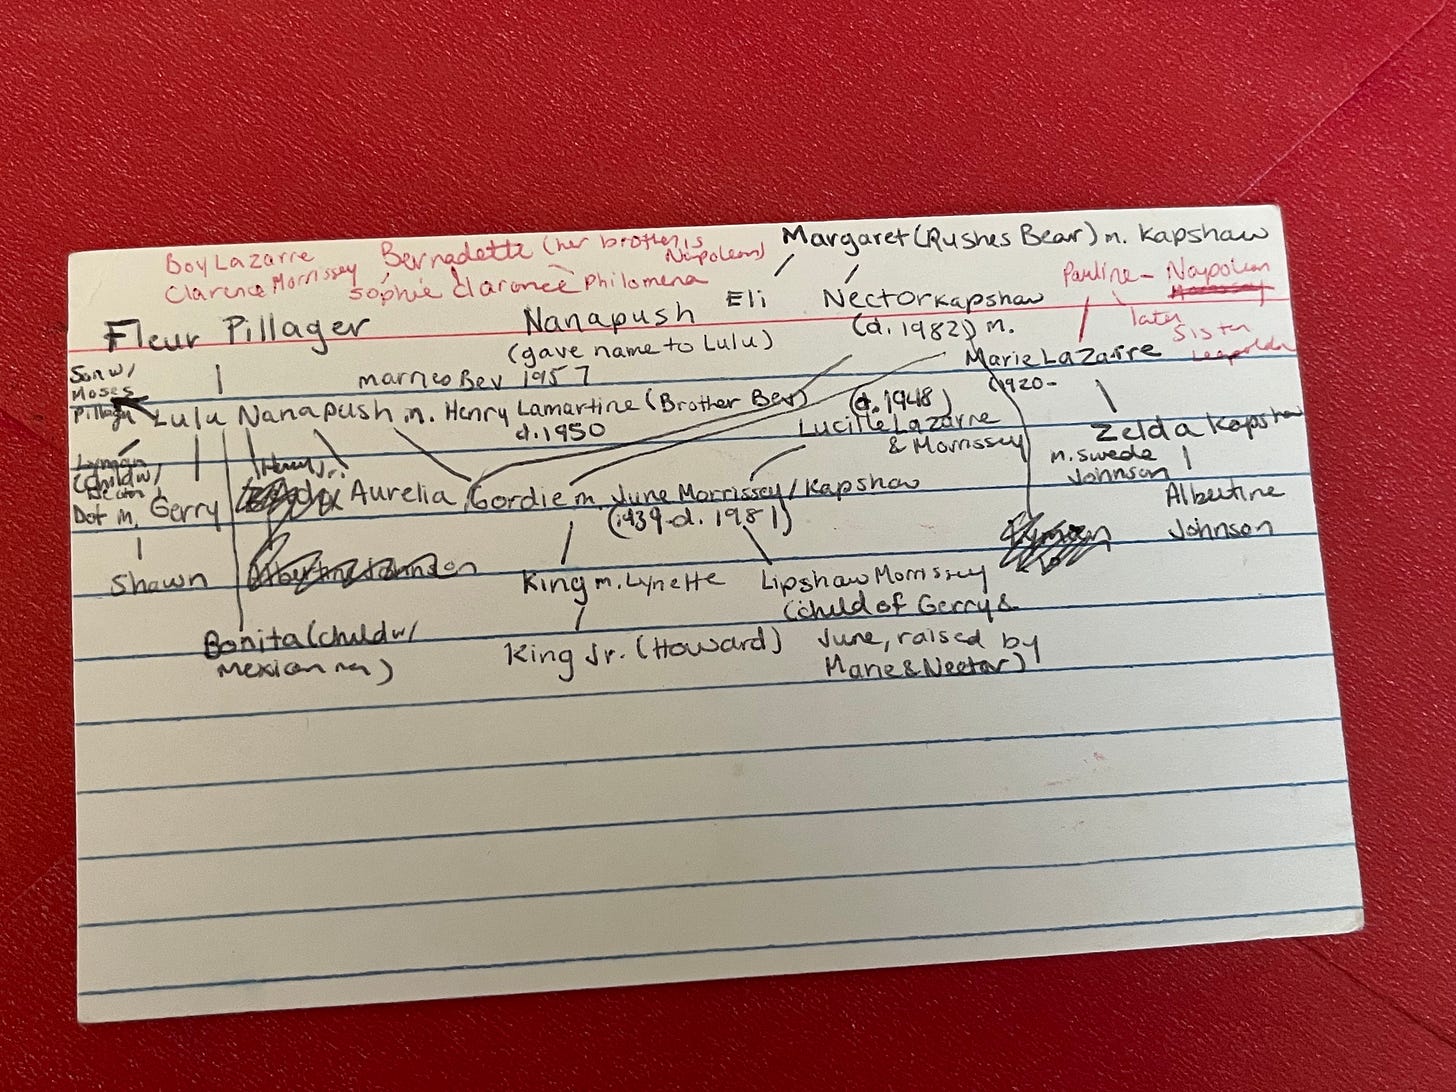 Boy Lazarre
Bernadette (her brother is Napoleon)
Margaret (Rushes Bear) m. Kapshaw
Clarence Morrissey
Sophie Clarence Philomena
Eli
Nector Kapshaw
Pauline - Napoleon
later Sister Leopolda
Fleur Pillager
Nanapush
(d. 1982) m.
(gave name to Lulu)
Marie Lazarre
(1920-
Son w/ Moses Pillager
married Bev 1957
Lulu Nanapush m. Henry Lamartine (Brother Bev)
d. 1950
(d. 1948)
Lucille Lazarre
& Morrissey
Zelda Kapshaw
m. Swede Johnson
Lyman (child w/ Nector)
Henry Jr.
Dot m. Gerry
Aurelia
Gordie m. June Morrissey/Kapshaw
(1939-d. 1981)
Albertine
Johnson
Shawn
King m. Lynette
Lipshaw Morrissey
(child of Gerry &
June, raised by
Marie & Nector)
Bonita (child w/
Mexican
King Jr. (Howard)